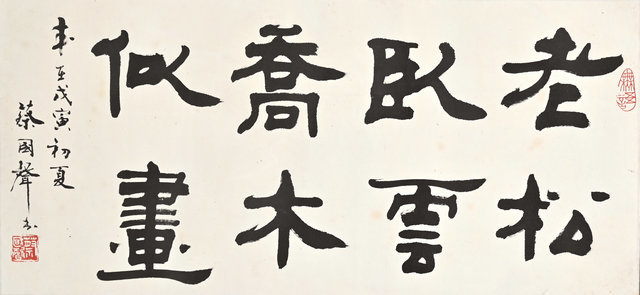 老松
臥雲
喬木
似畫
歲在戊寅初夏
蔡國聲書